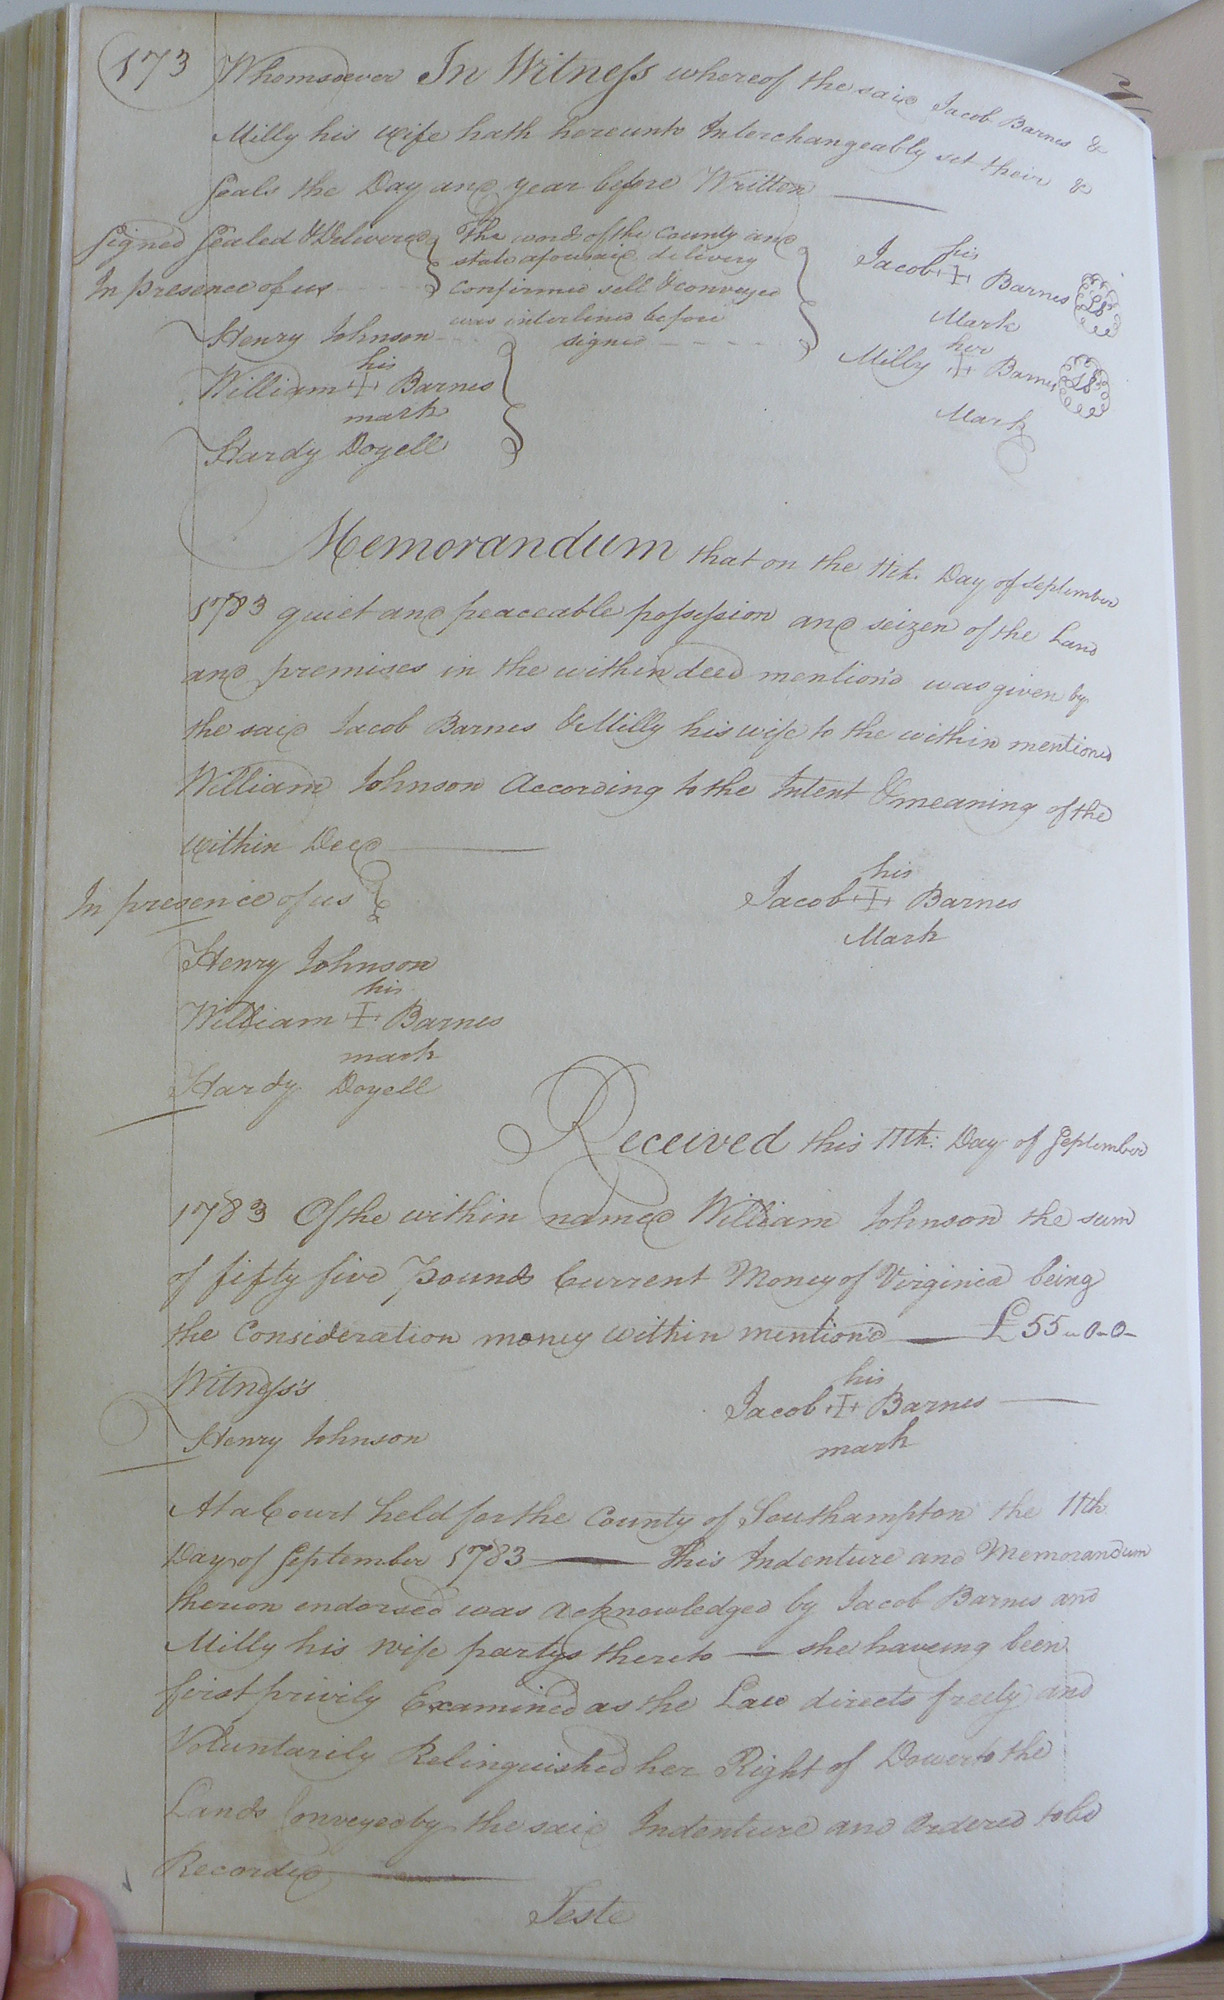 173
Whomsoever In Witness whereof the said Jacob Barnes &
Milly his wife hath hereunto Interchangeably set their &
Seals the Day and year before Written
Signed Sealed & Delivered
In presence of us
The word of the County and
state aforesaid delivery
confirmed sell & conveyed
was interlined before
signed
his
Jacob + Barnes LS
Mark
her
Milly + Barnes LS
Mark
Henry Johnson
his
William + Barnes
mark
Hardy Doyell
Memorandum that on the 11th. Day of September
1783 quiet and peaceable possession and seizen of the Land
and premises in the within deed mention'd was given by
the said Jacob Barnes & Milly his wife to the within mentioned
William Johnson According to the Intent & meaning of the
within Deed
In presence of us
his
Jacob + Barnes
Mark
Henry Johnson
his
William + Barnes
mark
Hardy Doyell
Received this 11th: Day of September
1783 Of the within named William Johnson the sum
of fifty five Pounds Current Money of Virginia being
the Consideration money within mention'd £55-0-0-
Witness's
his
Jacob + Barnes
mark
Henry Johnson
At a Court held for the County of Southampton the 11th
Day of September 1783 This Indenture and Memorandum
thereon endorsed was acknowledged by Jacob Barnes and
Milly his wife partys thereto she haveing been
first privily Examined as the Law directs freely and
Voluntarily Relinquished her Right of Dower to the
Lands Conveyed by the said Indenture and Ordered to be
Recorded
Teste